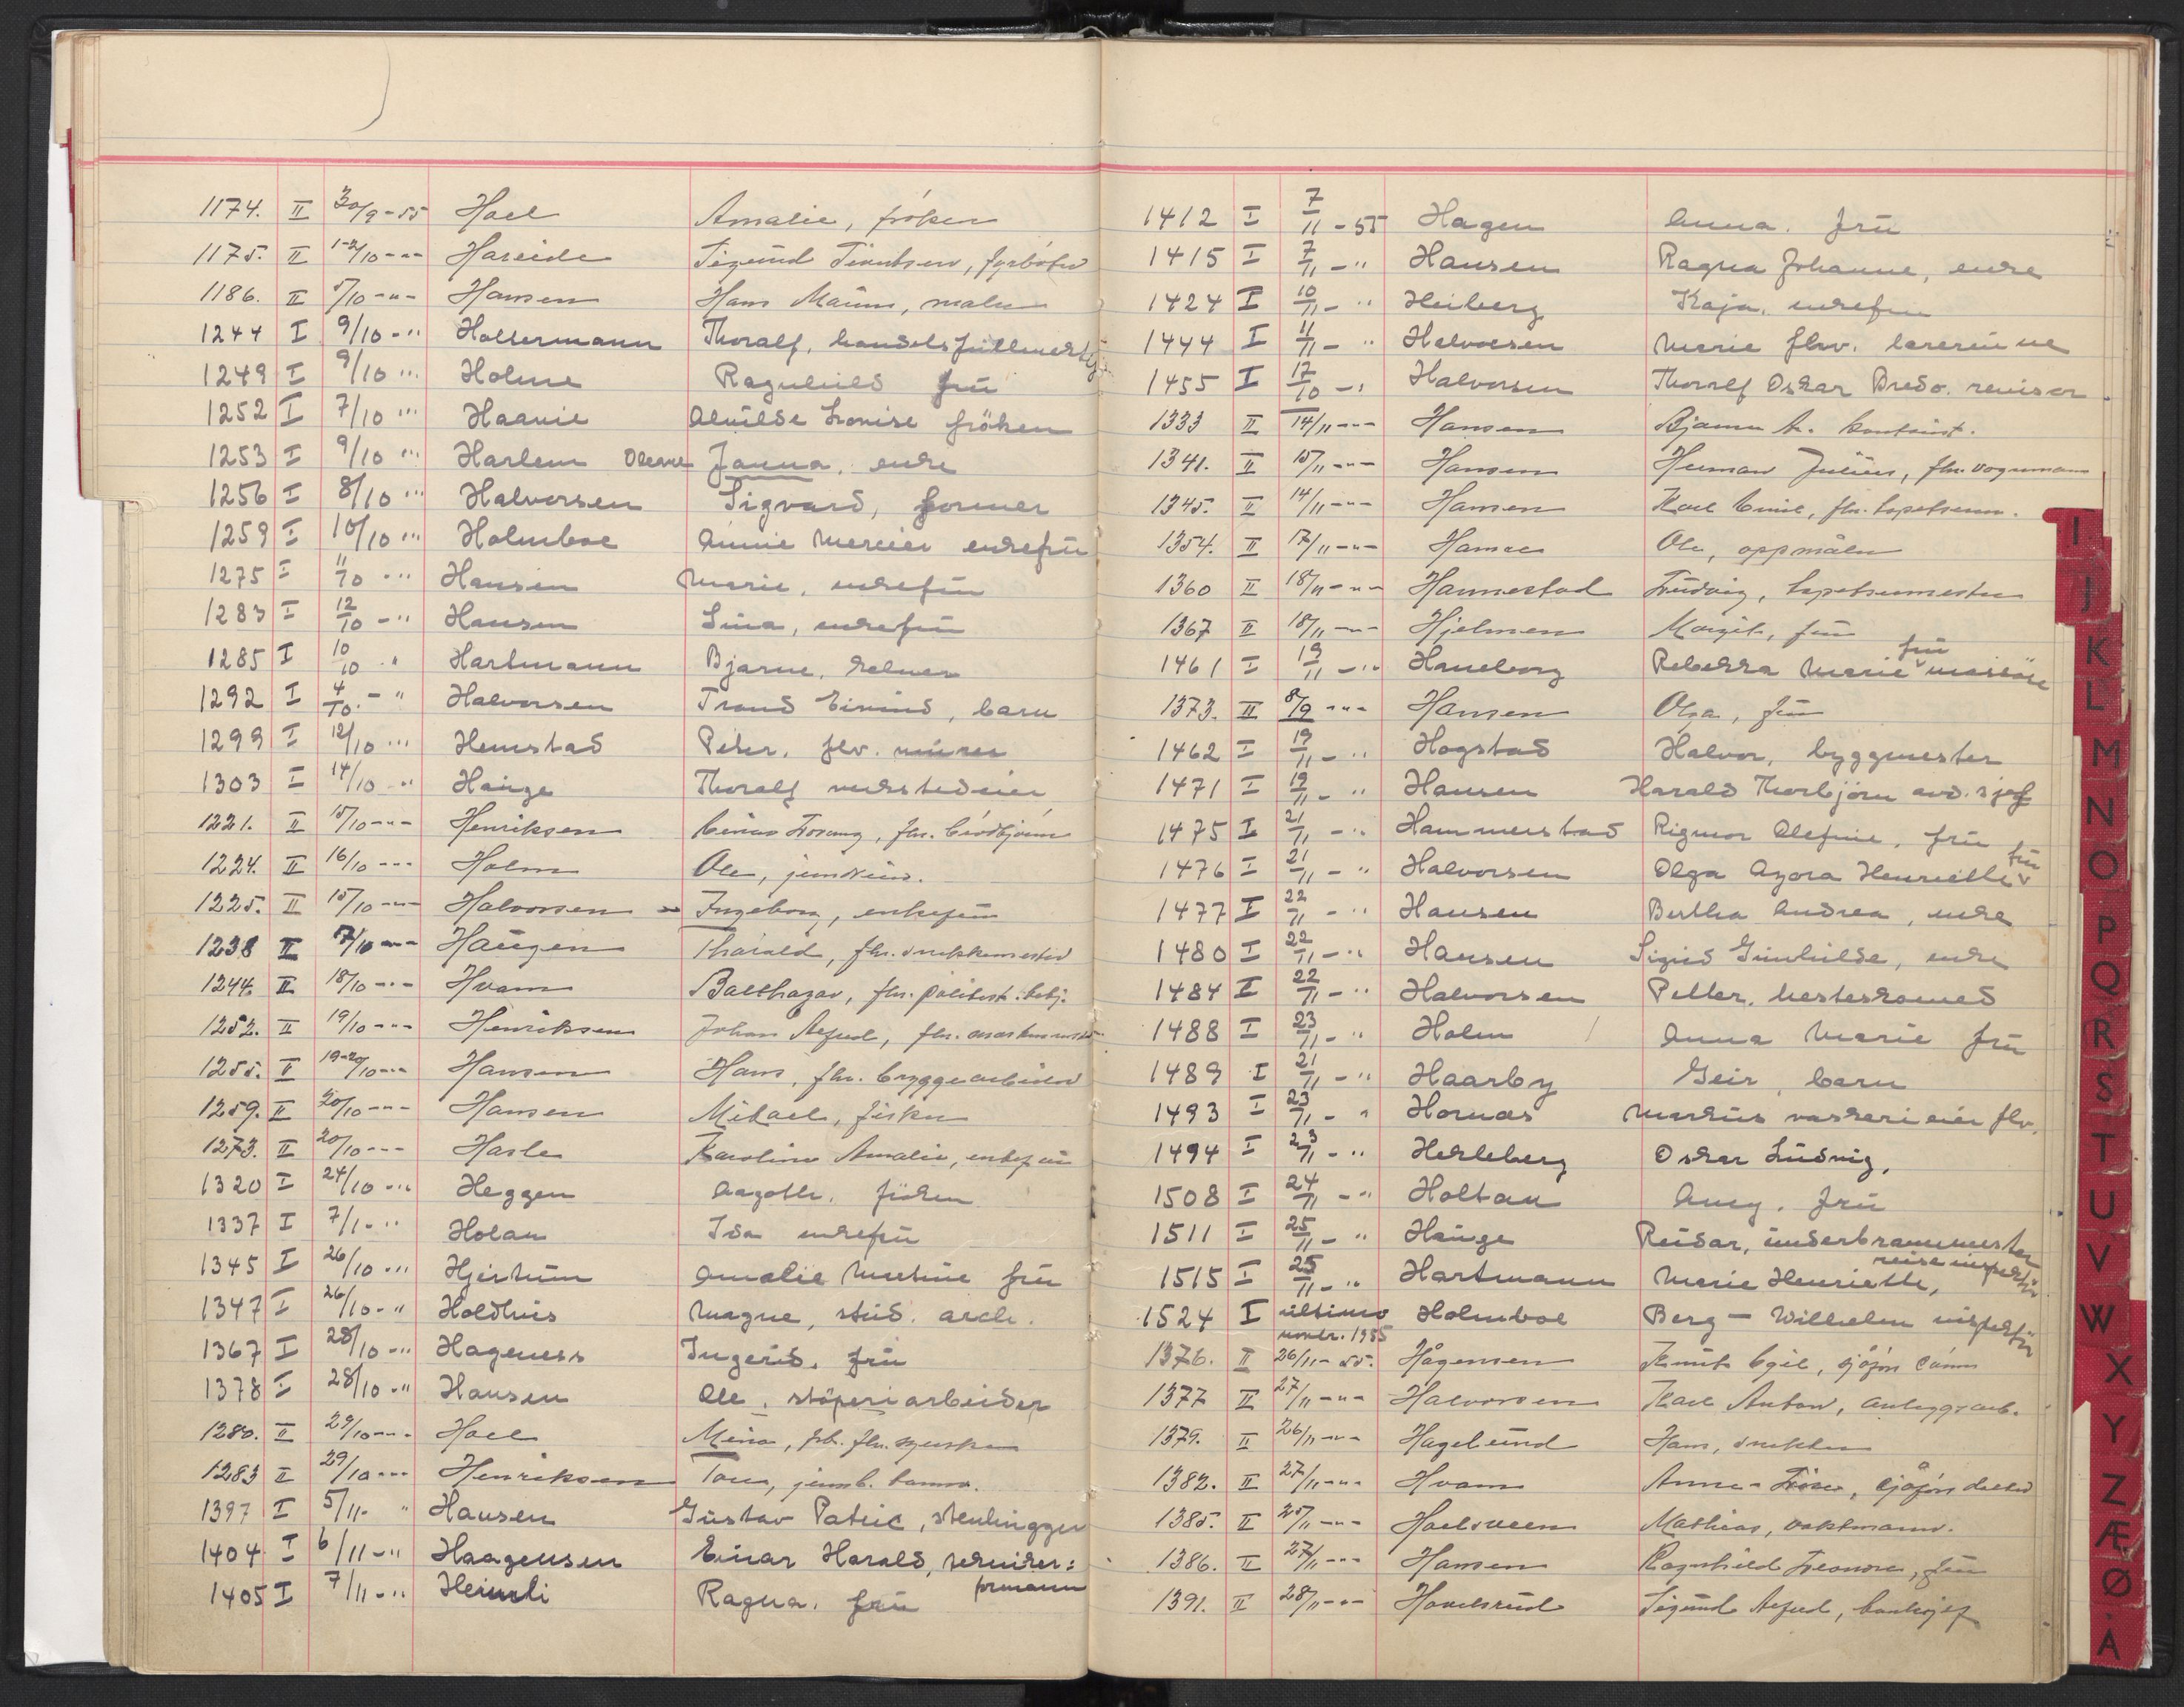 1174. II 30/9-55 Hoel Amalie, frøken
1175. II 1-2/10 -"- Hareide Sigurd, fyrbøter
1186. II 5/10 -"- Hansen Hans Maurus, maler
1244 I 9/10 -" Holtermann Thoralf, handelsfullmektig
1249 I 9/10 -" Holme Ragnhild frü
1252 I 7/10 -" Haavie Alvilde Lovise fröken
1253 I 9/10 -" Harlem Oleane Janna, enke
1256 I 8/10 -" Halvorsen Sigvard, former
1259 I 10/10 -" Holmboe Annie Mercier enkefrü
1275 I 11/10 -" Hansen Marie, enkefrü
1283 I 12/10 -" Hansen Lina, enkefrü
1285 I 10/10 " Hartmann Bjarne, kelner
1292 I 4/10 -" Halvorsen Trond Eivind, barn
1299 I 12/10 -" Hemstad Peter, flv. mürer
1303 I 14/10 -" Haüge Thoralf verkstedeier
1221. II 15/10 -"- Henriksen Einar
1224. II 16/10 -"- Holm Ole,
1225. II 15/10 -"- Halvorsen - Ingeborg, enkefrü
1238 II 7/10 -"- Haügen Tharald, fhv. trykkemester
1244. II 18/10 -"- Hvam Balthazar, fhv. politist. betj.
1252. II 19/10 -"- Henriksen Johan Alfred, fhv.
1255. II 19-20/10 -"- Hansen Hans, fhv. bryggearbeider
1259. II 20/10 -"- Hansen Mikael, fisker
1273. II 20/10 -"- Hasle Karoline Amalie, enkefrü
1320 I 24/10 -" Heggen Aagothe, fröken
1337 I 7/1 -" Holan Ida enkefrü
1345 I 26/10 -" Hjertüm Amalie Martine frü
1347 I 26/10 -" Holdhüs Magne, stüd. arch.
1367 I 28/10 -" Hageness Ingerid, frü
1378 I 28/10 -" Hansen Ole, stöperiarbeider
1280. II 29/10 -"- Hoel Mina,
1283 II 29/10 -"- Henriksen
1397 I 5/11 - " Hansen Güstav Patric, stenhügger
1404 I 6/11 -" Haagensen Einar Harald, snekker:
formann
1405 I 7/11 -" Heimli Ragna, frü
1412 I 7/11 -55 Hagen Anna, frü
1415 I 7/11 -" Hansen Ragna Johanne, enke
1424 I 10/11 - " Heiberg Kaja, enkefrü
1444 I 11/11 - " Halvorsen Marie fhv. lærerinne
1455 I 17/10 -" Halvorsen Thoralf Oskar Bredo. revisor
1333 II 14/11 -"- Hansen Bjarne A. kontorist.
1341. II 15/11 -"- Hansen Herman Julius, fhv. vognmann
1345. II 14/11 -"- Hansen Karl Emil, fhv. tapetserer.
1354. II 17/11 -"- Hansen Ole, oppmåler
1360 II 18/11 -"- Hannestad Lüdvig, tapetserermester
1367 II 18/11 -"- Hjelmen Margit, frü
1461 I 19/11 -" Haneborg Rebekka Marie frü
1373. II 8/9 -"- Hansen Olga, frü
1462 I 19/11 - " Hogstad Halvor, byggmester
1471 I 19/11 - " Hansen Harald Thorbjørn avd. sjef
1475 I 21/11 -" Hammerstad Rigmor Olefine, frü
1476 I 21/11 - " Halvorsen Olga Azora Henriette frü
1477 I 22/11 -" Hansen Bertha Andrea, enke
1480 I 22/11 -" Hansen Sigrid Günhilde, enke
1484 I 22/11 -" Halvorsen Petter, hesteskomed
1488 I 23/11 - " Holm Anna Marie frü
1489 I 21/11 -" Haarby Geir, barn
1493 I 23/11 - " Hornæs Markus vaskerieier flv.
1494 I 23/11 -" Herleberg Oskar Lüdvig,
1508 I 24/11 -" Holtan Aney, frü
1511 I 25/11 - " Haüge Reidar, ünderbrannmester
1515 I 25/11 - " Hartmann Marie Henriette, reiseinspektør
1524 I ultimo novbr. 1955 Holmboe Berg - Wilhelm inspektør
1376. II 26/11 -55. Hågensen Knut Egil,
1377 II 27/11 -"- Halvorsen Karl Anton, anleggsarb.
1379. II 26/11 -"- Hagelund Hans, trykker
1382. II 27/11 -"- Hvam Anne-Lise, sjåførs datter
1385. II 25/11 -"- Hoelsveen Mathias, vaktmann.
1386. II 27/11 -"- Hansen Ragnhild Leonore, frü
1391. II 28/11 -"- Havelsrüd Sigurd Alfred, banksjef
I
J
K
L
M
N
O
P
Q
R
S
T
U
V
W
X
Y
Z
Æ
Ø
Å